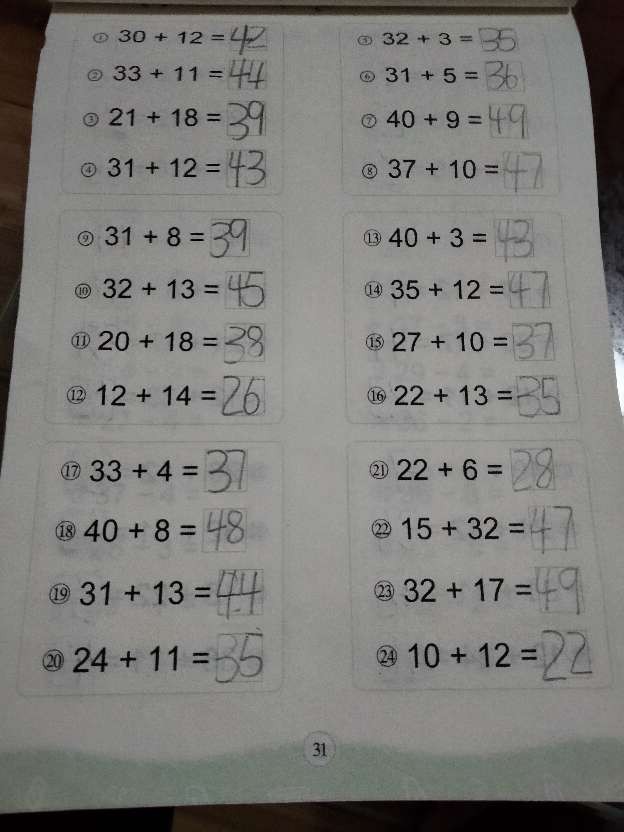 ① 30 + 12 = 42
② 33 + 11 = 44
③ 21 + 18 = 39
④ 31 + 12 = 43
⑤ 32 + 3 = 35
⑥ 31 + 5 = 36
⑦ 40 + 9 = 49
⑧ 37 + 10 = 47
⑨ 31 + 8 = 39
⑩ 32 + 13 = 45
⑪ 20 + 18 = 38
⑫ 12 + 14 = 26
⑬ 40 + 3 = 43
⑭ 35 + 12 = 47
⑮ 27 + 10 = 37
⑯ 22 + 13 = 35
⑰ 33 + 4 = 37
⑱ 40 + 8 = 48
⑲ 31 + 13 = 44
⑳ 24 + 11 = 35
㉑ 22 + 6 = 28
㉒ 15 + 32 = 47
㉓ 32 + 17 = 49
㉔ 10 + 12 = 22
31